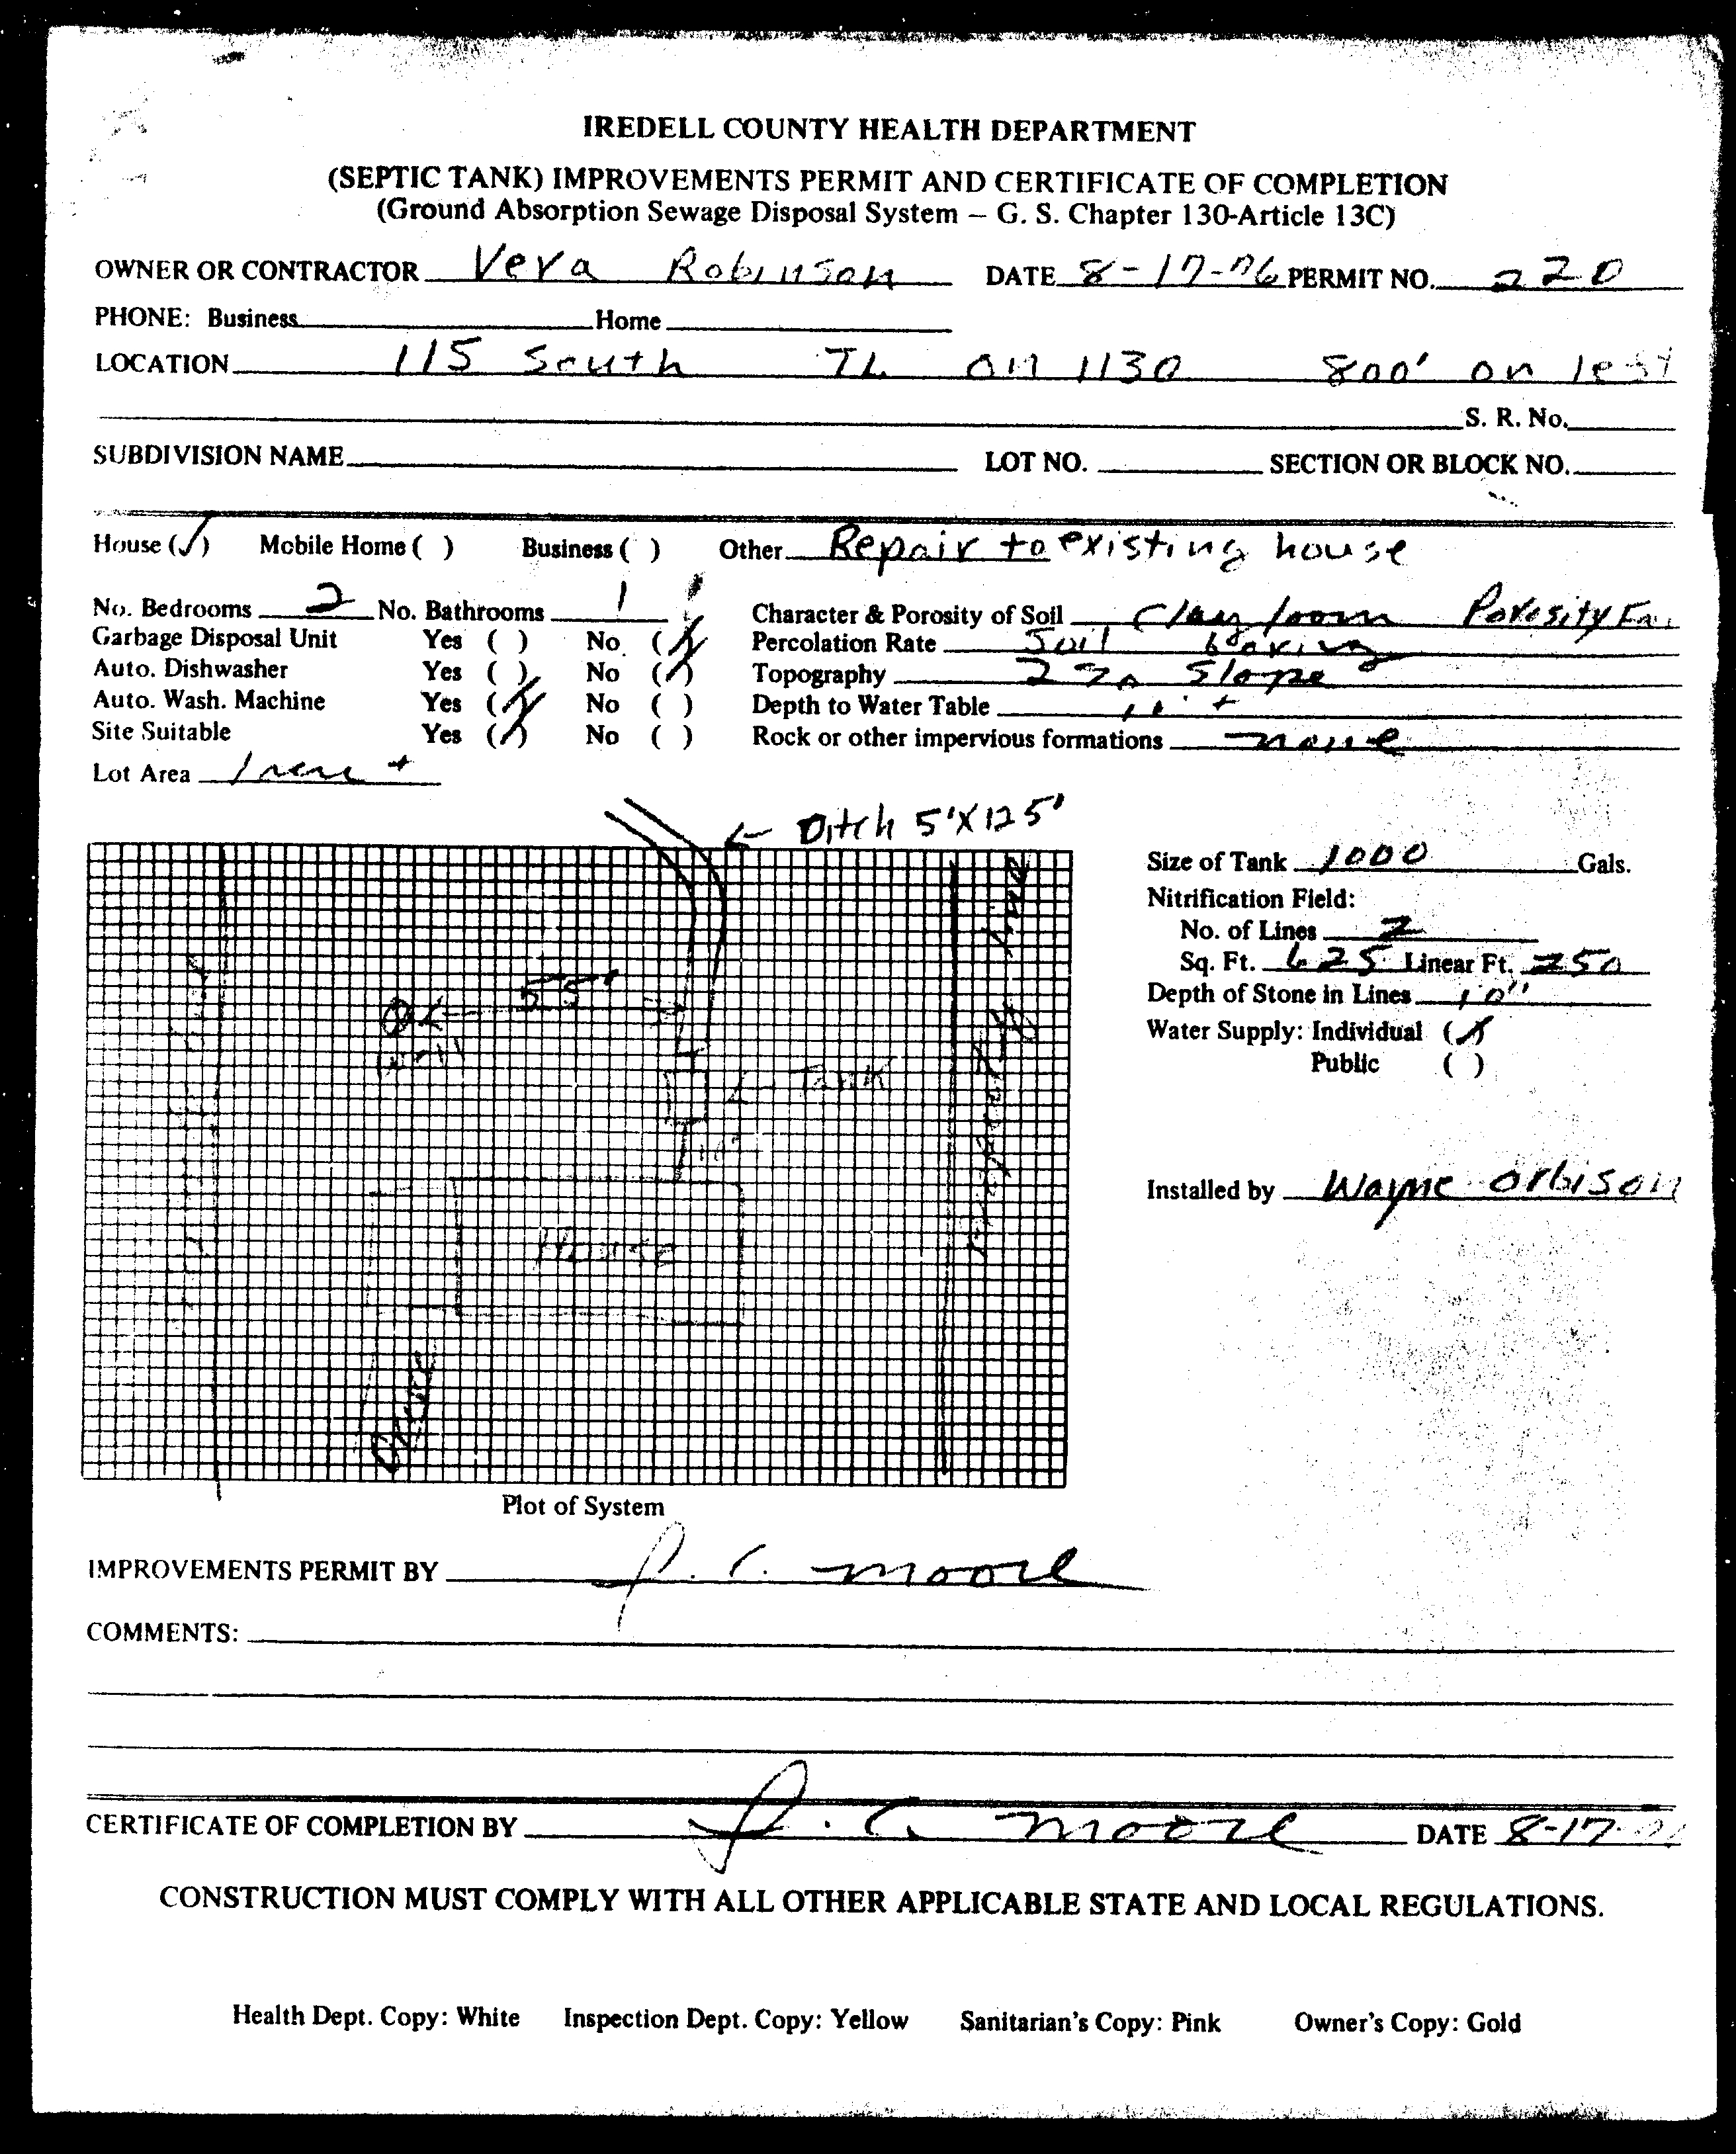 IREDELL COUNTY HEALTH DEPARTMENT
(SEPTIC TANK) IMPROVEMENTS PERMIT AND CERTIFICATE OF COMPLETION
(Ground Absorption Sewage Disposal System – G. S. Chapter 130-Article 13C)
OWNER OR CONTRACTOR Vera Robinson DATE 8-17-76 PERMIT NO. 220
PHONE: Business Home
LOCATION 115 South TL on 1130 800' on left
S. R. No.
SUBDIVISION NAME LOT NO. SECTION OR BLOCK NO.
House (✓) Mobile Home ( ) Business ( ) Other Repair to existing house
No. Bedrooms 2 No. Bathrooms 1 Character & Porosity of Soil Clay loom Porosity
Garbage Disposal Unit Yes ( ) No (✓) Percolation Rate Soil boring
Auto. Dishwasher Yes ( ) No (✓) Topography 2% Slope
Auto. Wash. Machine Yes (✓) No ( ) Depth to Water Table
Site Suitable Yes (✓) No ( ) Rock or other impervious formations none
Lot Area 1 acre +
← Ditch 5'X125'
Size of Tank 1000 Gals.
Nitrification Field:
No. of Lines 2
Sq. Ft. 625 Linear Ft. 250
Depth of Stone in Lines 10"
Water Supply: Individual (✓)
Public ( )
55'
Well
← Tank
Property line
Installed by Wayne Orbison
House
Drive
Plot of System
IMPROVEMENTS PERMIT BY J. C. Moore
COMMENTS:
CERTIFICATE OF COMPLETION BY J. C. Moore DATE 8-17-76
CONSTRUCTION MUST COMPLY WITH ALL OTHER APPLICABLE STATE AND LOCAL REGULATIONS.
Health Dept. Copy: White Inspection Dept. Copy: Yellow Sanitarian's Copy: Pink Owner's Copy: Gold